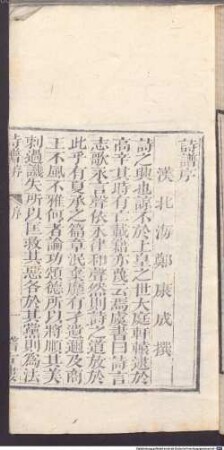 詩譜序
漢北海鄭康成撰
詩之興也諒不於上皇之世大庭軒轅逮於
高辛其時有亡載籍亦蔑云焉虞書曰詩言
志歌永言聲依永律和聲然則詩之道放於
此乎有夏承之篇章泯棄靡有孑遺邇及商
王不風不雅何者論功頌德所以將順其美
刺過譏失所以匡救其惡各於其黨則為法
詩譜序